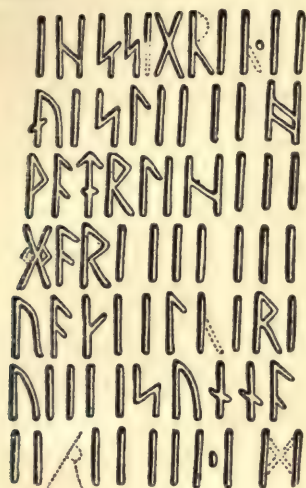 ᛁᚺᛋᛋᛁᚷᚱᛁᛁᛁ
ᚢᛁᛋᛚᛁᛁᛁᛁᚻ
ᚹᚨᛏᚱᛚᚺᛁᛁᛁ
ᚷᚨᚱᛁᛁᛁᛁᛁᛁᛁ
ᚢᚨᚴᛁᛁᛚᛁᛁᚱᛁ
ᚢᛁᛁᛁᛁᛋᚢᚾᚾᚨ
ᛁᛁᛁᛁᛁᛁᛁ·ᛁᛞ